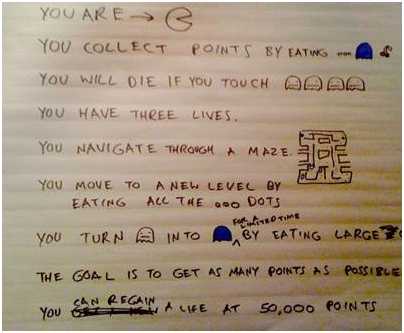 YOU ARE →
YOU COLLECT POINTS BY EATING
YOU WILL DIE IF YOU TOUCH
YOU HAVE THREE LIVES.
YOU NAVIGATE THROUGH A MAZE.
YOU MOVE TO A NEW LEVEL BY
EATING ALL THE ooo DOTS
YOU TURN INTO FOR A LIMITED TIME BY EATING LARGE
THE GOAL IS TO GET AS MANY POINTS AS POSSIBLE
YOU CAN REGAIN A LIFE AT 50,000 POINTS